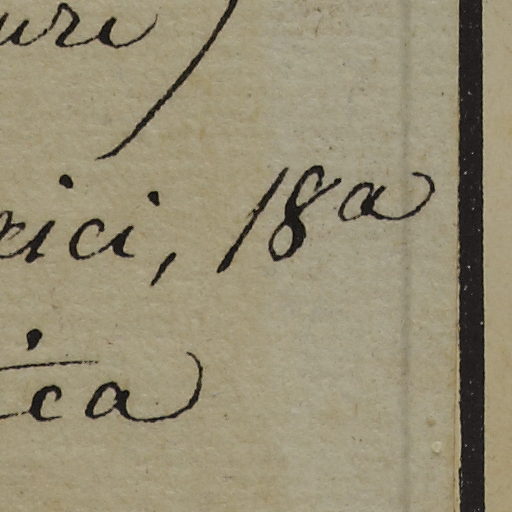 uri)
eici, 18a
tica